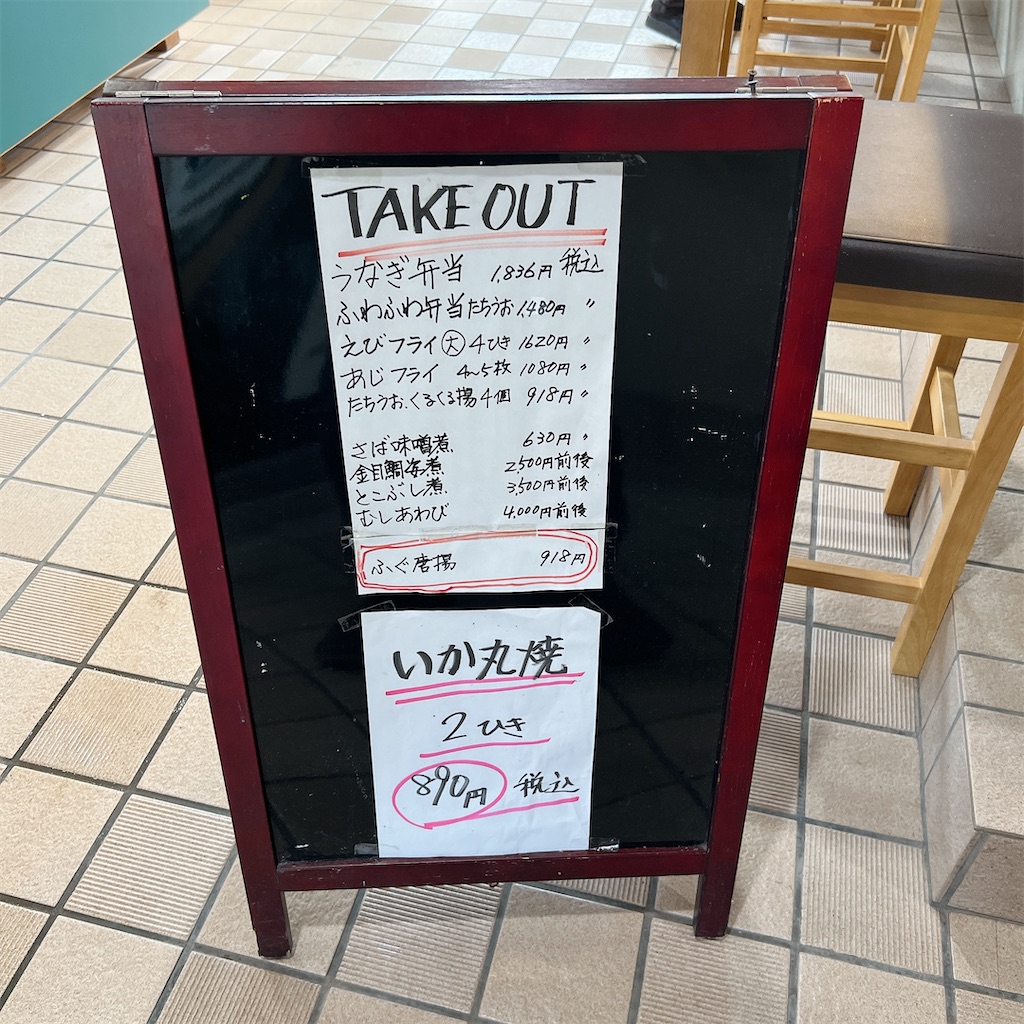 TAKE OUT
うなぎ弁当 1,836円 税込
ふわふわ弁当たちうお 1,480円 〃
えびフライ 大 4ひき 1620円 〃
あじフライ 4~5枚 1080円 〃
たちうお、くるくる揚 4個 918円 〃
さば味噌煮 630円 〃
金目鯛姿煮 2,500円前後
とこぶし煮 3,500円前後
むしあわび 4,000円前後
ふぐ唐揚 918円
いか丸焼
2ひき
890円 税込